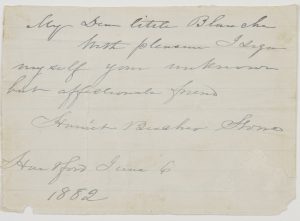 My Dear little Blanche
With pleasure I sign
myself your unknown
but affectionate friend
Harriet Beecher Stowe
Hartford June 6
1882